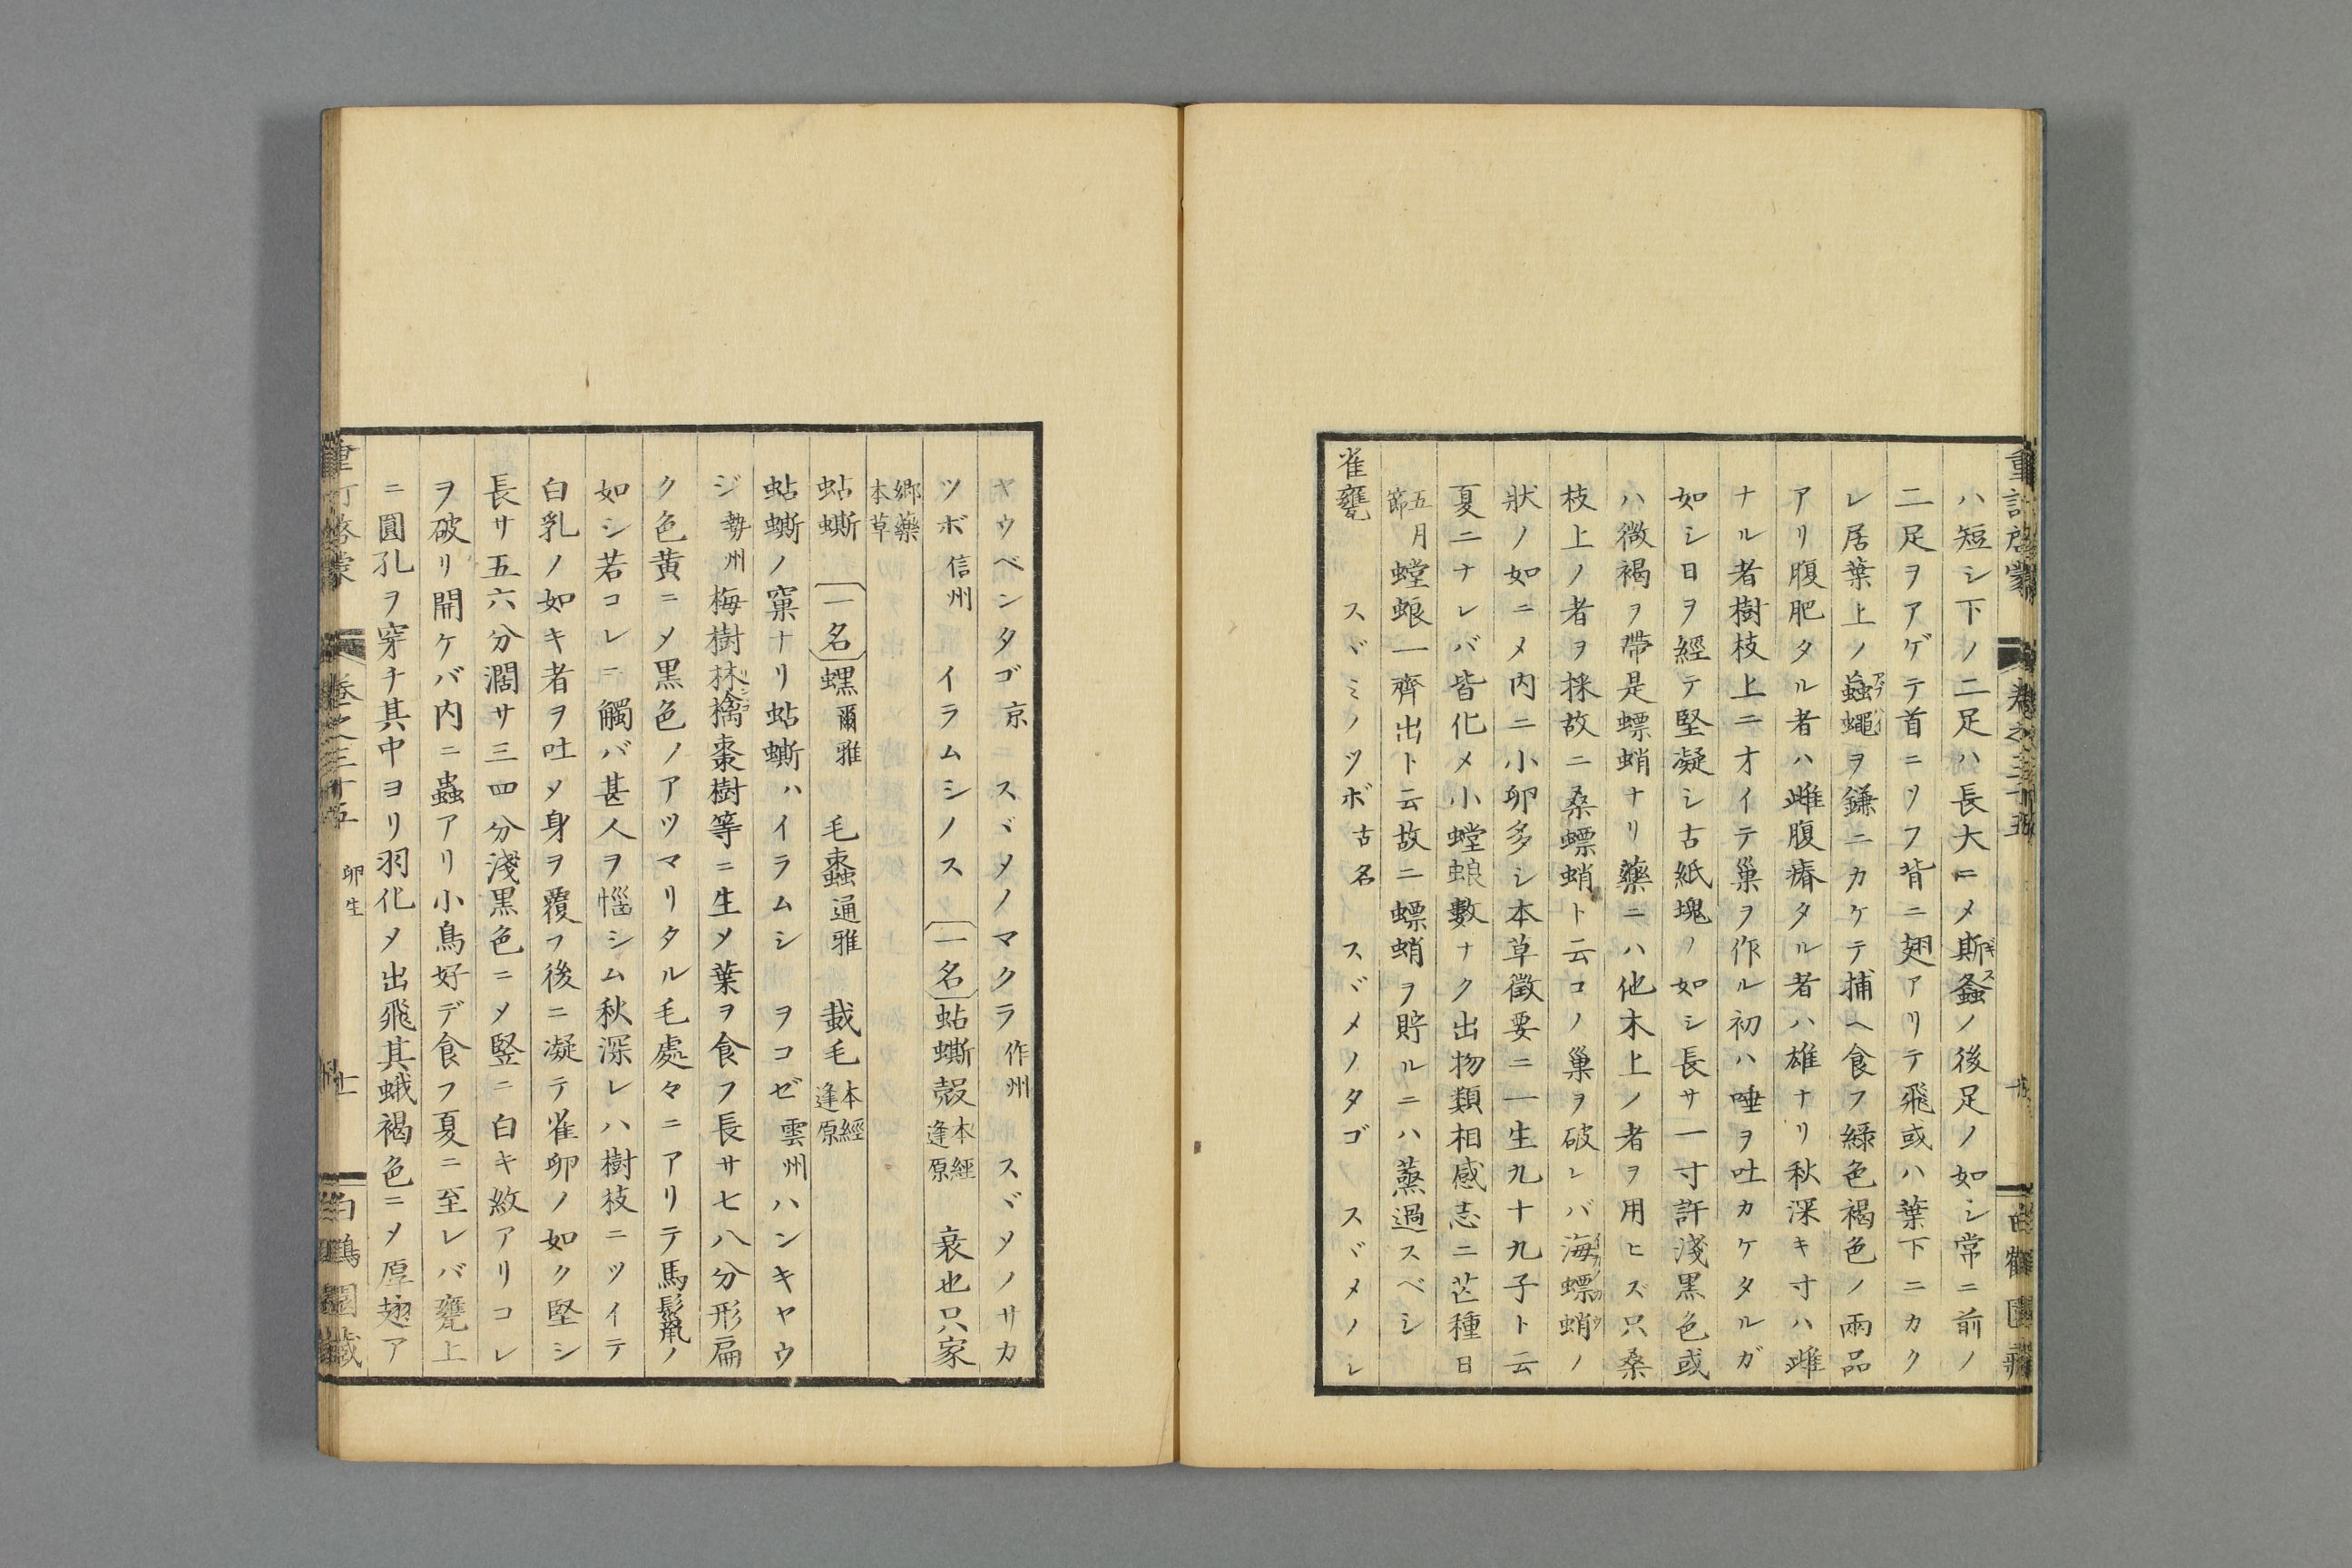 ハ短シ下ノ二足ハ長大ニメ斯螽ノ後足ノ如シ常ニ前ノ
二足ヲアゲテ首ニソフ背ニ翅アリテ飛或ハ葉下ニカク
レ居葉上ノ蟲蠅ヲ鎌ニカケテ捕ヘ食フ綠色褐色ノ兩品
アリ腹肥タル者ハ雌腹瘠タル者ハ雄ナリ秋深キ寸ハ雌
ナル者樹枝上ニオイテ巢ヲ作ル初ハ唾ヲ吐カケタルガ
如シ日ヲ經テ堅凝シ古紙塊ノ如シ長サ一寸許淺黒色或
ハ微褐ヲ帶是螵蛸ナリ藥ニハ他木上ノ者ヲ用ヒズ只桑
枝上ノ者ヲ採故ニ桑螵蛸ト云コノ巢ヲ破レバ海螵蛸ノ
狀ノ如ニメ内ニ小卵多シ本草徵要ニ一生九十九子ト云
夏ニナレバ皆化メ小螳蜋數ナク出物類相感志ニ芒種日
五月節螳蜋一齊出ト云故ニ螵蛸ヲ貯ルニハ蒸過スベシ
雀甕 スヾミノツボ古名 スヾメノタゴ スヾメノシ
ヤウベンタゴ京 スヾメノマクラ作州 スヾソノサカ
ツボ信州 イラムシノス 一名蛅蟖殻本經逢原 衰也只家
郷藥本草
蛅蟖 一名蟔爾雅 毛棗蟲通雅 載毛本經逢原
蛅蟖ノ窠ナリ蛅蟖ハイラムシ ヲコゼ雲州ハンキヤウ
ジ勢州梅樹林檎棗樹等ニ生メ葉ヲ食フ長サ七八分形扁
ク色黄ニメ黒色ノアツマリタル毛處々ニアリテ馬鬛ノ
如シ若コレニ觸バ甚人ヲ惱シム秋深レハ樹枝ニツイテ
白乳ノ如キ者ヲ吐メ身ヲ覆フ後ニ凝テ雀卵ノ如ク堅シ
長サ五六分濶サ三四分淺黒色ニメ竪ニ白キ紋アリコレ
ヲ破リ開ケバ内ニ蟲アリ小鳥好デ食フ夏ニ至レバ甕上
ニ圓孔ヲ穿チ其中ヨリ羽化メ出飛其蛾褐色ニメ厚翅ア
卵生